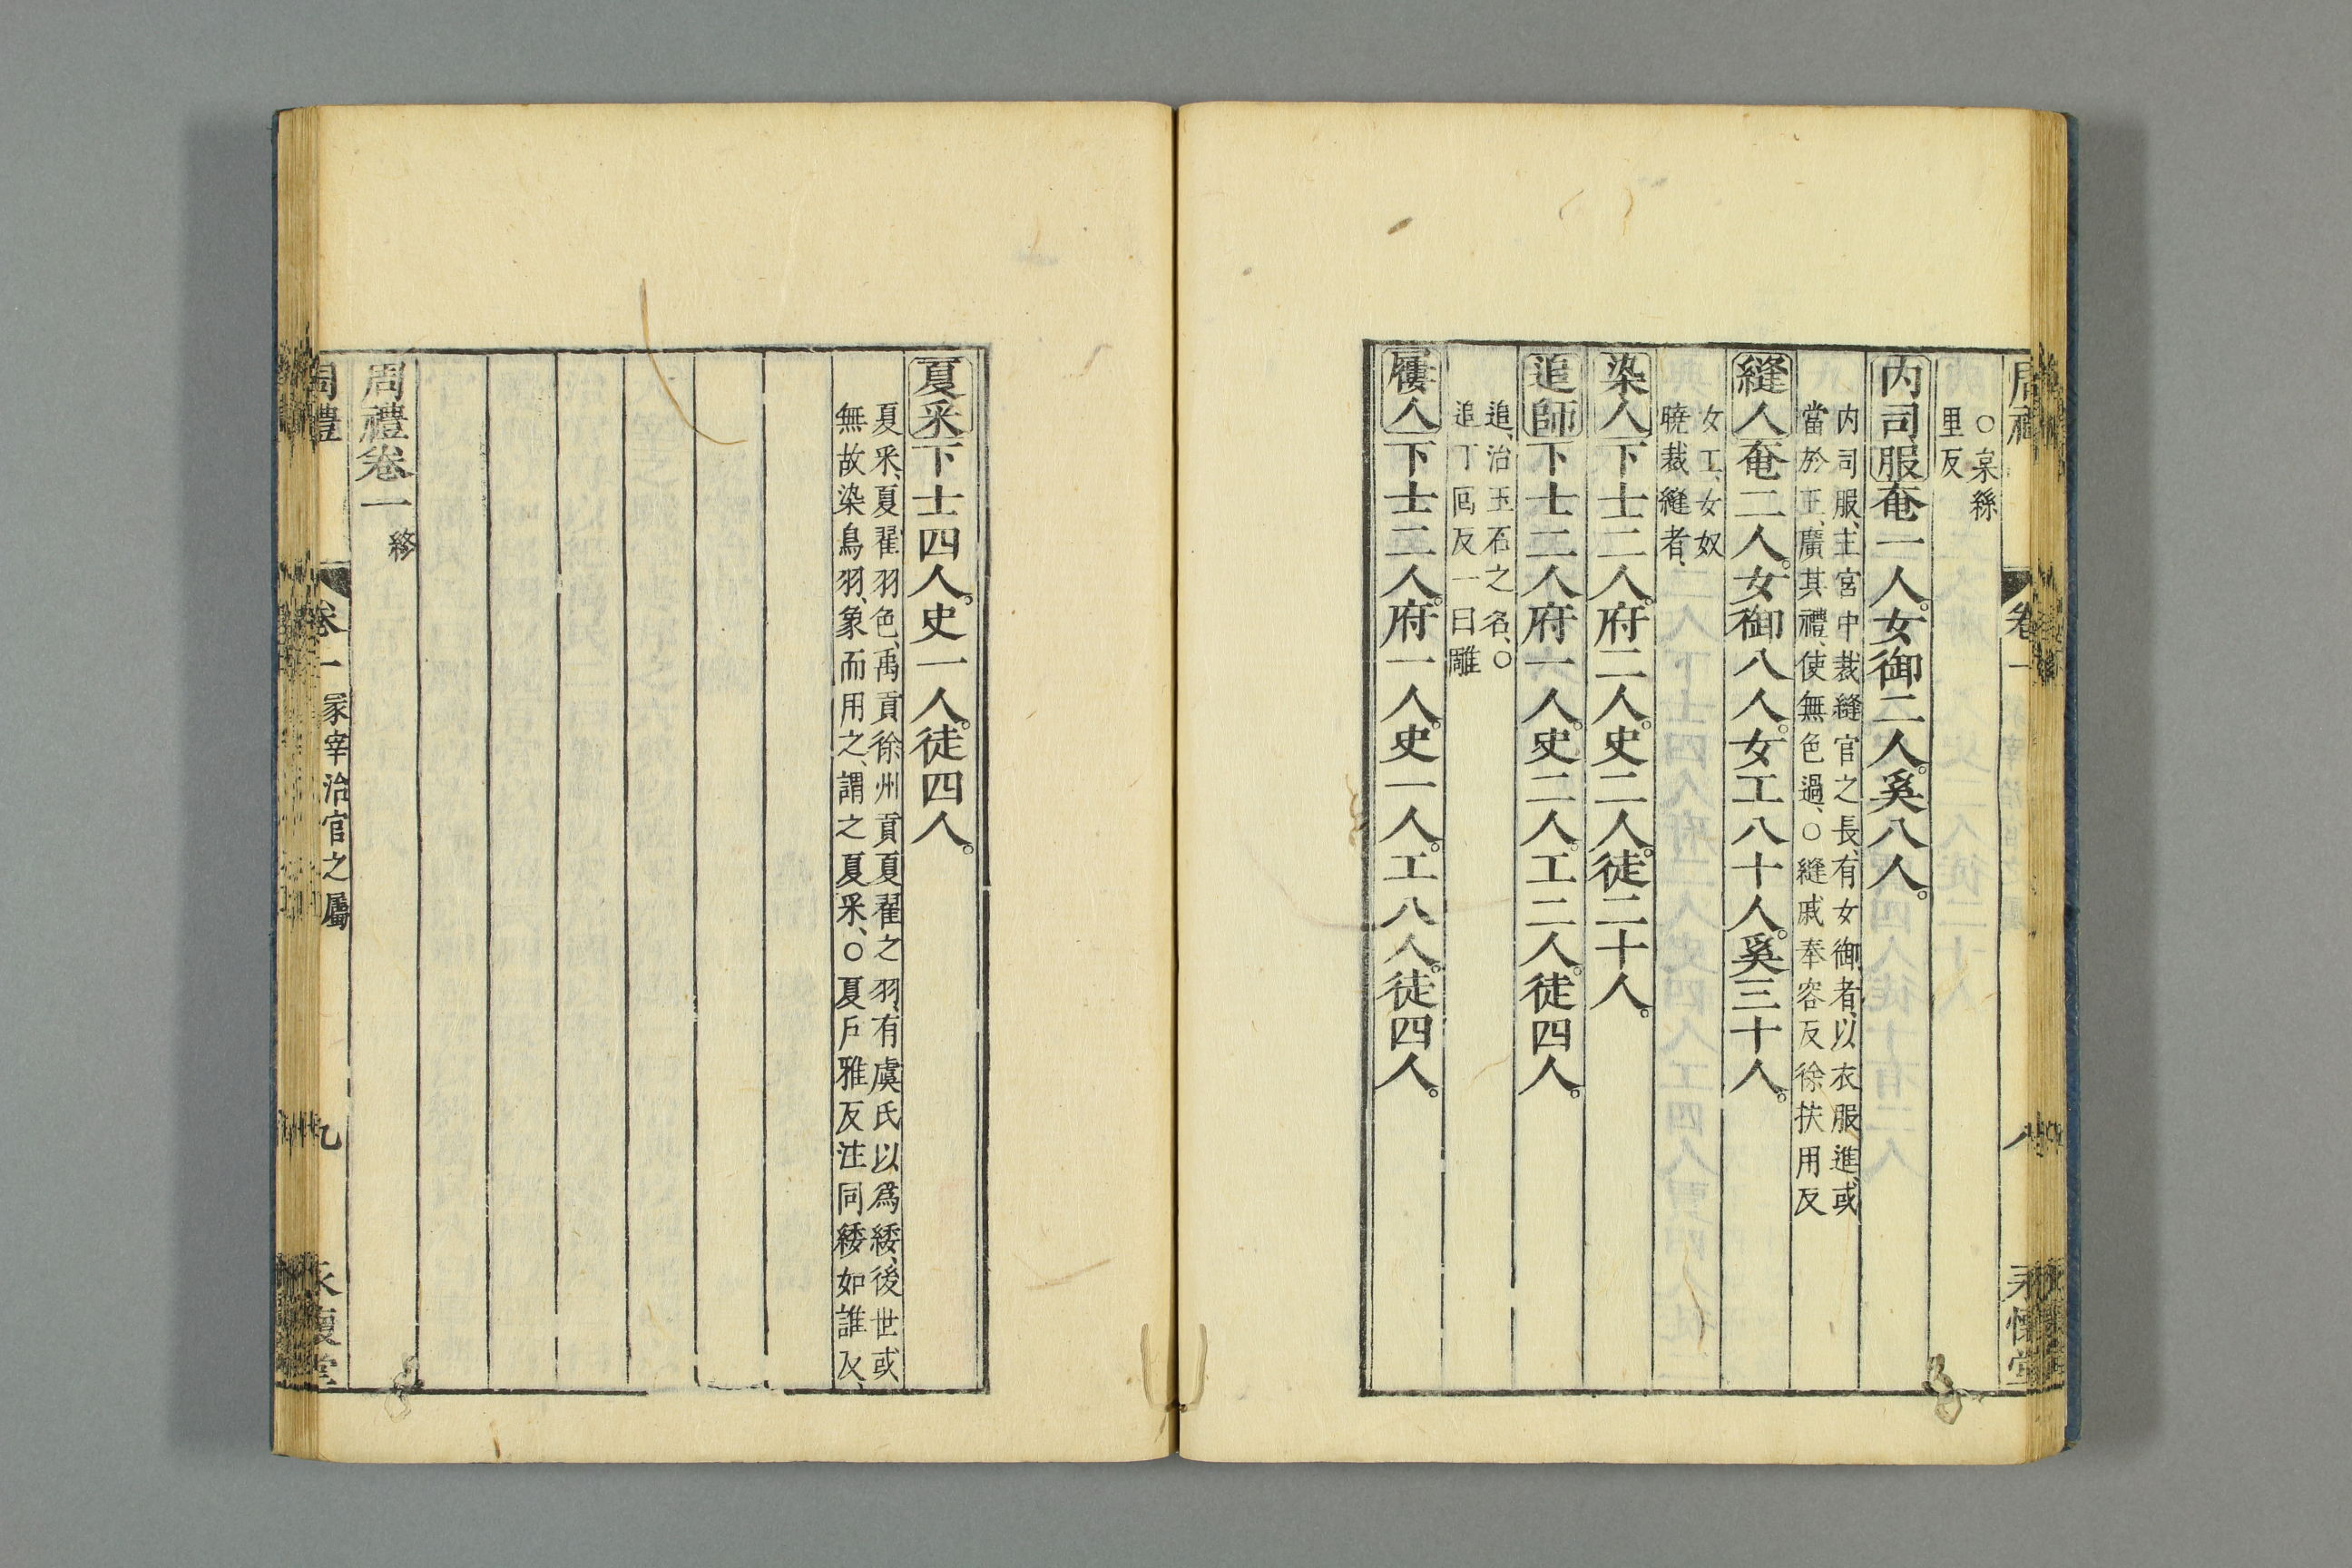 周禮
卷一
八
永懷堂
○枲絲
里反
内司服奄一人。女御二人。奚八人。
内司服、主宮中裁縫官之長、有女御者、以衣服進、或
當於王、廣其禮、使無色過、○縫戚奉容反徐扶用反
縫人奄二人。女御八人。女工八十人。奚三十人。
女工、女奴
曉裁縫者、
染人下士二人。府二人。史二人。徒二十人。
追師下士二人。府一人。史二人。工二人。徒四人。
追、治玉石之名、○
追丁回反一曰雕
屨人下士二人。府一人。史一人。工八人。徒四人。
夏采下士四人。史一人。徒四人。
夏采、夏翟羽色、禹貢徐州貢夏翟之羽、有虞氏以爲緌、後世或
無故染鳥羽、象而用之、謂之夏采、○夏戶雅反注同緌如誰反、
周禮卷一 終
周禮
卷一 冢宰治官之屬
九
永懷堂